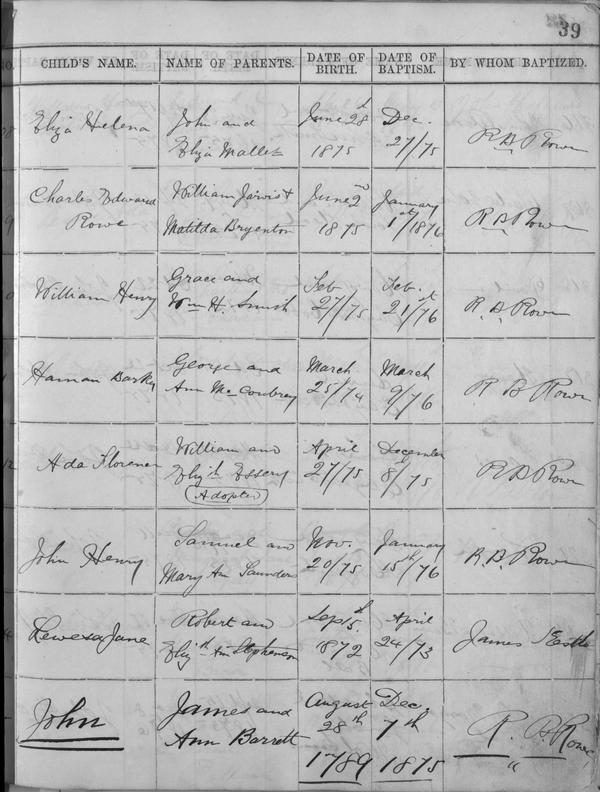 39
CHILD'S NAME. NAME OF PARENTS. DATE OF BIRTH. DATE OF BAPTISM. BY WHOM BAPTIZED.
Eliza Helena John and June 28th Dec.
Eliza Mallett 1875 27/75 R B Rowe
Charles Edward William Jarvis + June 2nd January
Rowe Matilda Bryenton 1875 1st/1876 R B Rowe
William Henry Grace and Feb Feb.
Wm H. Smish 27/75 21st/76 R. B. Rowe
George and March March
Ann McCoubrey 25/74 9/76 R B Rowe
Ada Florence William and April December
Elizth Essery 27/75 8/75 R B Rowe
(Adopted)
John Henry Samuel and Nov. January
Mary An Saunders 20/75 15th/76 R. B. Rowe
Jane Robert and Sep 5th April
Elizth An Stephenson 1872 24/73 James
John James and August Dec.
Ann Barrett 28th 7th R. B. Rowe
1789 1875 "